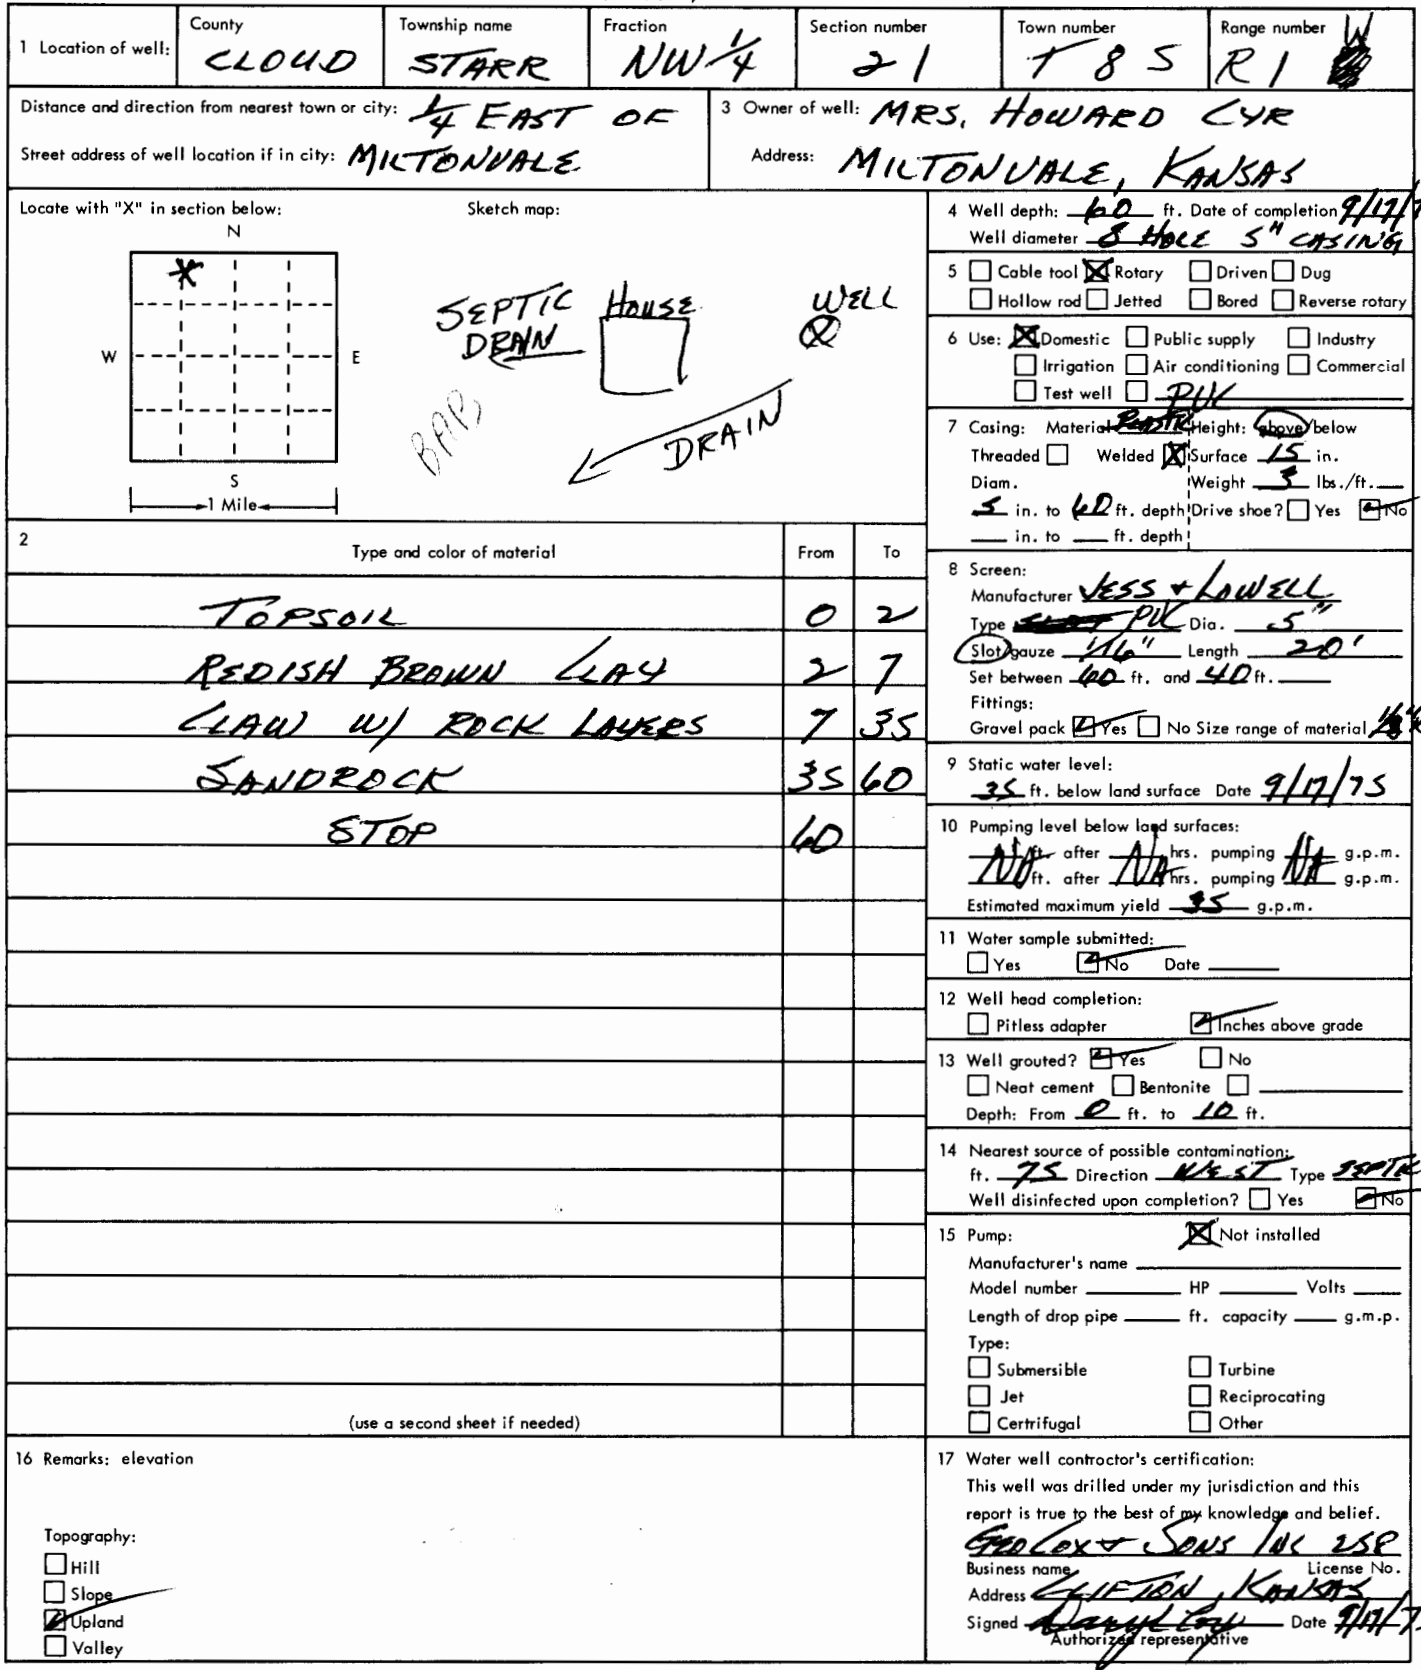 1 Location of well: County CLOUD Township name STARR Fraction NW 1/4 Section number 21 Town number T 8 S Range number R 1 W
Distance and direction from nearest town or city: 1/4 EAST OF
Street address of well location if in city: MILTONVALE
3 Owner of well: MRS. HOWARD CYR
Address: MILTONVALE, KANSAS
Locate with "X" in section below:
N
W E
S
1 Mile
Sketch map:
SEPTIC DRAIN
HOUSE
WELL
BAR
DRAIN
2 Type and color of material From To
TOPSOIL 0 2
REDISH BROWN CLAY 2 7
CLAW W/ ROCK LAYERS 7 35
SANDROCK 35 60
STOP 60
(use a second sheet if needed)
4 Well depth: 60 ft. Date of completion 9/17/7
Well diameter 8 HOLE 5" CASING
5 Cable tool X Rotary Driven Dug
Hollow rod Jetted Bored Reverse rotary
6 Use: X Domestic Public supply Industry
Irrigation Air conditioning Commercial
Test well
PVC
7 Casing: Material Height: above/below
Threaded Welded X Surface 15 in.
Diam. Weight lbs./ft.
5 in. to 60 ft. depth Drive shoe? Yes No
in. to ft. depth
8 Screen:
Manufacturer JESS + LOWELL
Type PVC Dia. 5"
Slot/gauze 1/16" Length 20'
Set between 60 ft. and 40 ft.
Fittings:
Gravel pack Yes No Size range of material
9 Static water level:
35 ft. below land surface Date 9/17/75
10 Pumping level below land surfaces:
NA ft. after NA hrs. pumping NA g.p.m.
ft. after hrs. pumping g.p.m.
Estimated maximum yield 35 g.p.m.
11 Water sample submitted:
Yes No Date
12 Well head completion:
Pitless adapter Inches above grade
13 Well grouted? Yes No
Neat cement Bentonite
Depth: From 0 ft. to 10 ft.
14 Nearest source of possible contamination:
ft. 75 Direction WEST Type SEPTIC
Well disinfected upon completion? Yes No
15 Pump: X Not installed
Manufacturer's name
Model number HP Volts
Length of drop pipe ft. capacity g.m.p.
Type:
Submersible Turbine
Jet Reciprocating
Certrifugal Other
16 Remarks: elevation
Topography:
Hill
Slope
Upland
Valley
17 Water well controctor's certification:
This well was drilled under my jurisdiction and this
report is true to the best of my knowledge and belief.
GEO COX + SONS INC 258
Business name License No.
Address CLIFTON, KANSAS
Signed Daryl Cox Date 9/17/7
Authorized representative